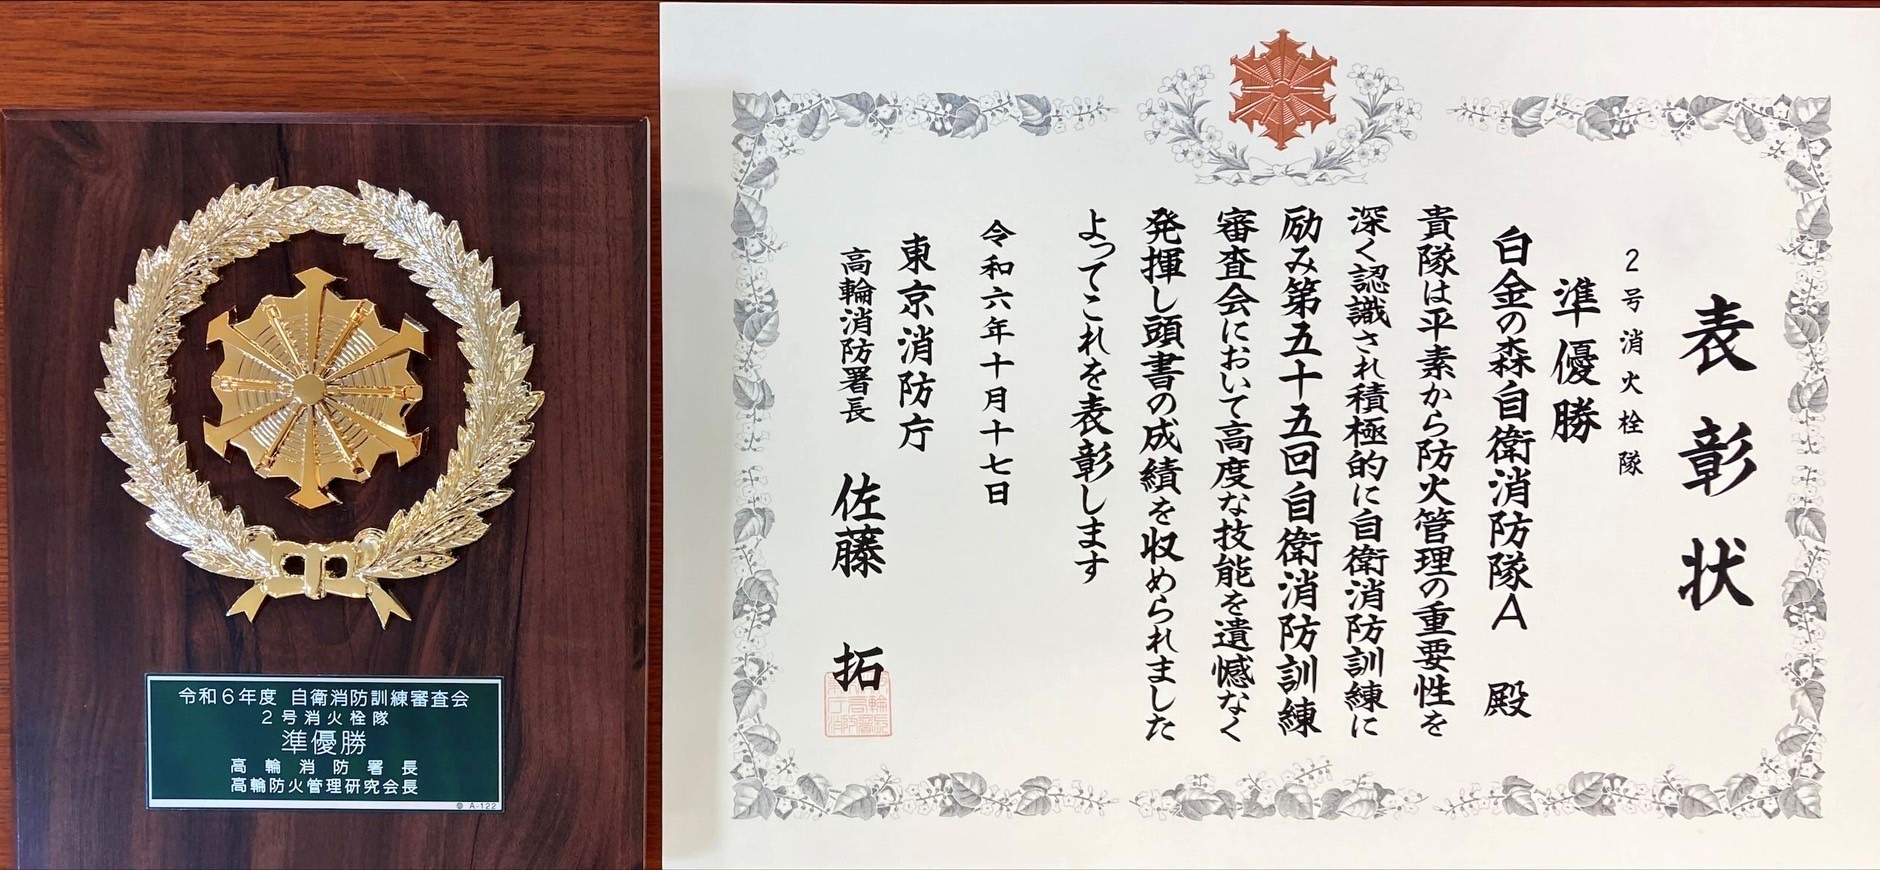 令和6年度 自衛消防訓練審査会
2号消火栓隊
準優勝
高輪消防署長
高輪防火管理研究会長
A-122
表彰状
2号消火栓隊
準優勝
白金の森自衛消防隊A 殿
貴隊は平素から防火管理の重要性を
深く認識され積極的に自衛消防訓練に
励み第五十五回自衛消防訓練
審査会において高度な技能を遺憾なく
発揮し頭書の成績を収められました
よってこれを表彰します
令和六年十月十七日
東京消防庁
高輪消防署長 佐藤 拓